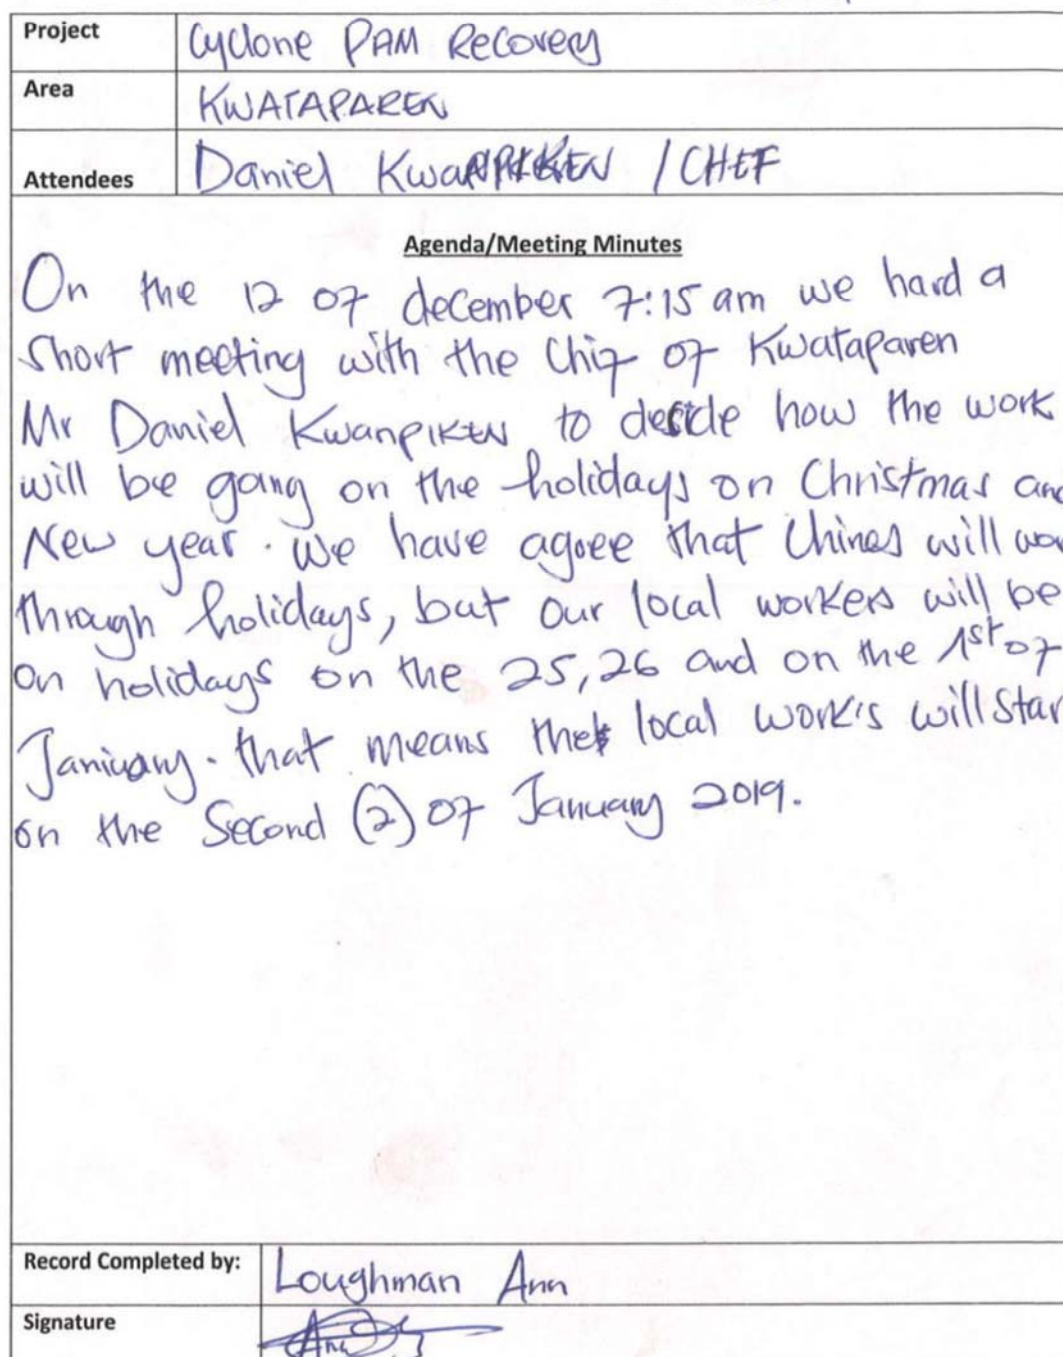 Project Cyclone PAM Recovery
Area KWATAPAREN
Attendees Daniel KwaNPIKEN / CHEF
Agenda/Meeting Minutes
On the 12 of december 7:15 am we hard a
Short meeting with the Chif of Kwataparen
Mr Daniel KwanpIKEN to decide how the work
will be gong on the holidays on Christmas and
New year. We have agree that Chines will wo
through holidays, but our local workers will be
on holidays on the 25, 26 and on the 1st of
Janiuary. that means the local work's will Star
on the Second (2) of January 2019.
Record Completed by: Loughman Ann
Signature